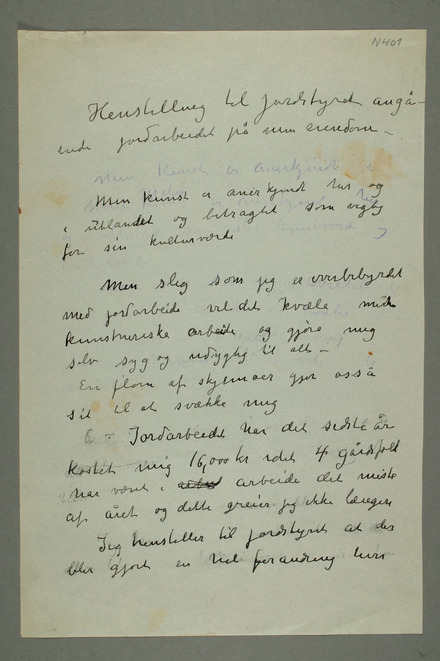 N 401
Henstilling til Jordstyret angå-
ende jordarbeidet på min eiendom –
Min kunst er anerkjendt her og
i utlandet og betragtet som vigtig
for sin kulturværdi
Men slig som jeg er overbebyrdet
med jordarbeide vil det kvæle min
kunstneriske arbeide og gjøre mig
selv syg og udygtig til alt –
En flom af skjemaer gjør også
sit til at svække mig
Jordarbeidet har det sidste år
kostet mig 16,000 kr idet 4 gårdsfolk
har været i arbeide det meste
af året og dette greier jeg ikke længere
Jeg henstiller til Jordstyret at der
blir gjort en forandring heri